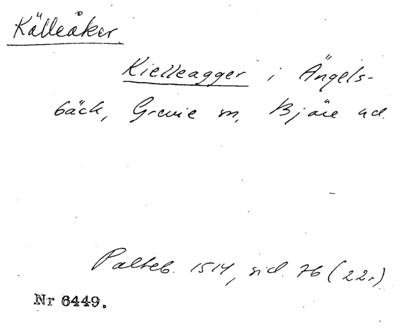 Källeåker
Kielleagger i Ängels-
bäck, Grevie sn, Bjäre hd.
Palteb. 1514, sid. 76 (22r)
Nr 6449.